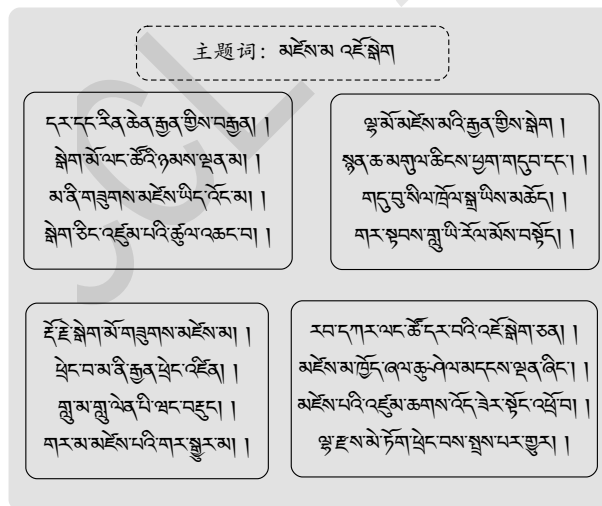 主题词：མཛེས་མ་ འཛོ་སྒེག
དར་དང་རིན་ཆེན་རྒྱན་གྱིས་བརྒྱན། །
སྒེག་མོ་ལང་ཚོའི་ཉམས་ལྡན་མ། །
མ་ནི་གཟུགས་མཛེས་ཡིད་འོང་མ། །
སྒེག་ཅིང་འཛུམ་པའི་ཚུལ་འཆང་བ། །
ལྷ་མོ་མཛེས་མའི་རྒྱན་གྱིས་སྒེག །
སྙན་ཆ་མགུལ་ཆིངས་ཕྱག་གདུབ་དང་། །
གདུ་བུ་སིལ་ཁྲོལ་སྒྲ་ཡིས་མཆོད། །
གར་སྟབས་གླུ་ཡི་རོལ་མོས་བསྟོད། །
རྡོ་རྗེ་སྒེག་མོ་གཟུགས་མཛེས་མ། །
ཕྲེང་བ་མ་ནི་རྒྱན་ཕྲེང་འཛིན། །
གླུ་མ་གླུ་ལེན་པི་ཝང་བརྡུང། །
གར་མ་མཛེས་པའི་གར་སྒྱུར་མ། །
རབ་དཀར་ལང་ཚོ་དར་བའི་འཛོ་སྒེག་ཅན། །
མཛེས་མ་ཁྱོད་ཞལ་ཆུ་ཤེལ་མདངས་ལྡན་ཞིང་། །
མཛེས་པའི་འཛུམ་ཆགས་འོད་ཟེར་སྟོང་འཕྲོ་བ། །
ལྷ་རྫས་མེ་ཏོག་ཕྲེང་བས་སྤྲས་པར་གྱུར། །